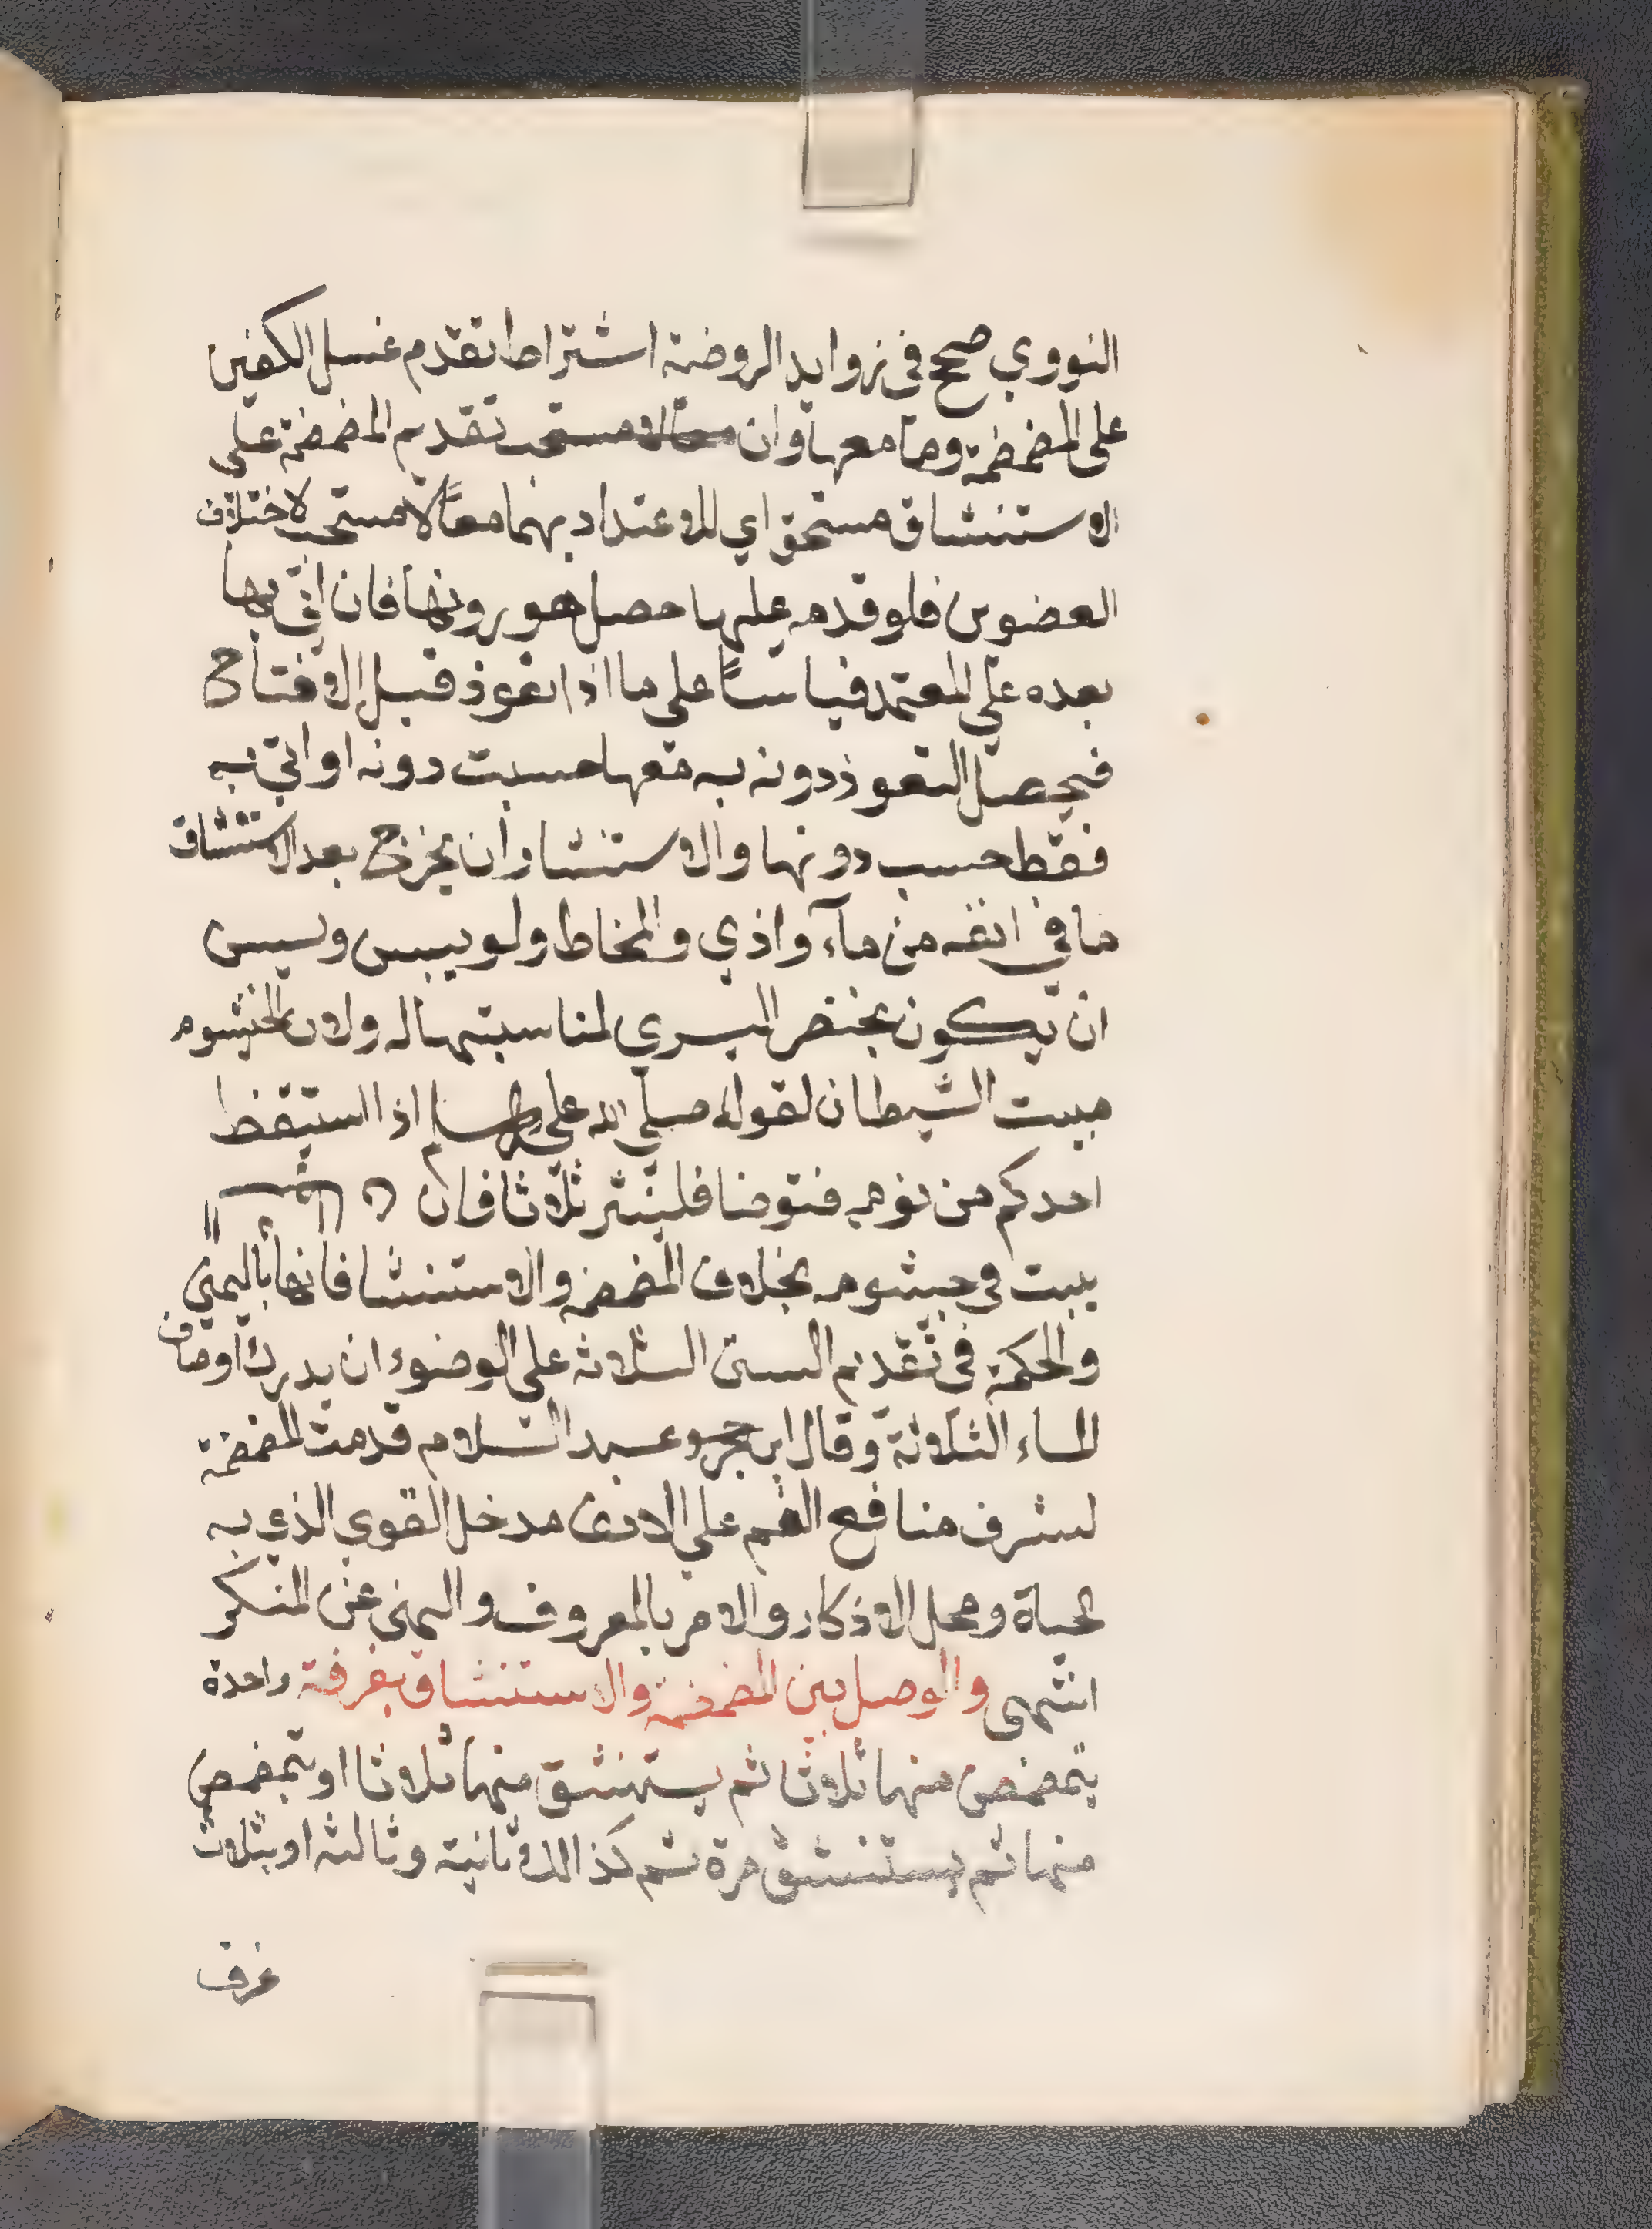 النووي صحح في زوايد الروضة اشتراط تقدم غسل الكفين
على المضمضة وما معها وان تقديم المضمضة على
الاستنشاق مستحق اي للاعتداد بهما معًا لا مستحب لاختلاف
العضوين فلو قدمه عليها حصل هو دونها فان اتى بها
بعده على المعتمد قياسًا على ما اذا تعوذ قبل الافتتاح
فيحصل التعوذ دونه به معها حسبت دونه او اتي به
فقط حسب دونها والاستنشار ان يخرج بعد الاستنشاق
ما في انفه من مآء واذي والمخاط ولو يبس ويسن
ان يكون بخنصر اليسري لمناسبتها له ولان الخيشوم
مبيت الشيطان لقوله صلي الله عليه وسلم اذا استيقظ
احدكم من نومه فتوضا فلينثر ثلاثا فان
يبيت في خيشومه بخلاف المضمضه والاستنشا فانها باليمني
والحكمة في تقديم السنن الثلاثه على الوضوء ان يدرك اوصاف
الماء الثلاثة وقال ابن عبد السلام قدمت المضمضة
لشرف منافع الفم علي الانف مدخل القوي الذي به
لحياة ومحل الاذكار والامر بالمعروف والنهي عن المنكر
انتهى والوصل بين المضمضة والاستنشاق بغرفة واحدة
يتمضمض منها ثلاثا ثم يستنشق منها ثلاثا او يتمضمض
منها ثم يستنشق مرة ثم كذالك ثانية وثالثه او بثلاث
غرف